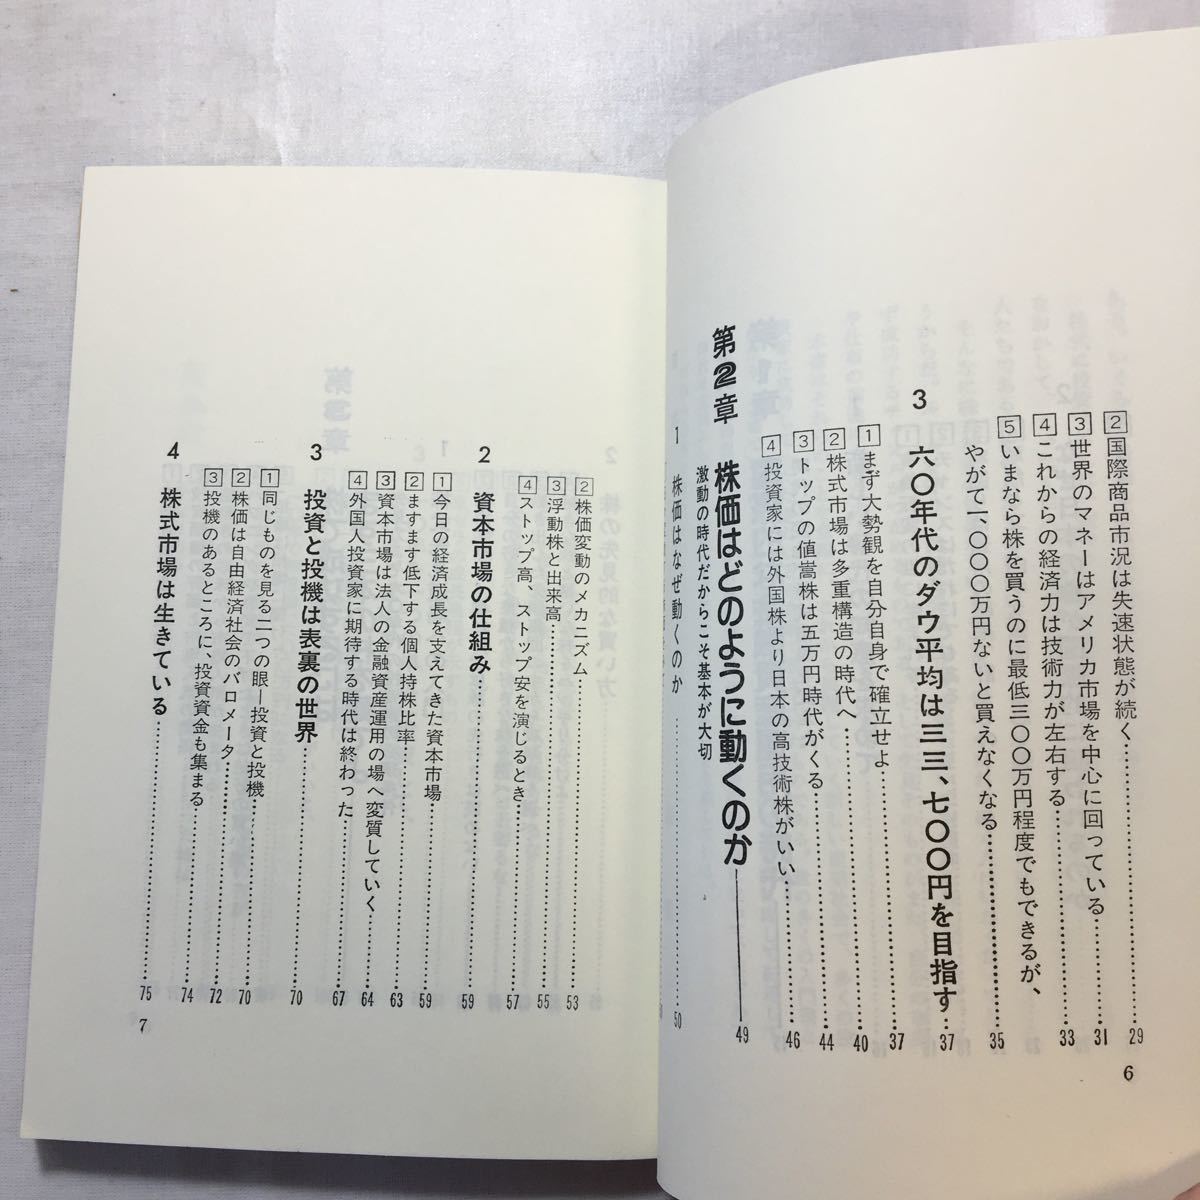 2 国際商品市況は失速状態が続く……29
3 世界のマネーはアメリカ市場を中心に回っている……31
4 これからの経済力は技術力が左右する……33
5 いまなら株を買うのに最低三〇〇万円程度でもできるが、
やがて一、〇〇〇万円ないと買えなくなる……35
3 六〇年代のダウ平均は三三、七〇〇円を目指す……37
1 まず大勢観を自分自身で確立せよ……37
2 株式市場は多重構造の時代へ……40
3 トップの値嵩株は五万円時代がくる……44
4 投資家には外国株より日本の高技術株がいい……46
第2章 株価はどのように動くのか――49
激動の時代だからこそ基本が大切
1 株価はなぜ動くのか……50
6
2 株価変動のメカニズム……53
3 浮動株と出来高……55
4 ストップ高、ストップ安を演じるとき……57
2 資本市場の仕組み……59
1 今日の経済成長を支えてきた資本市場……59
2 ますます低下する個人持株比率……63
3 資本市場は法人の金融資産運用の場へ変質していく……64
4 外国人投資家に期待する時代は終わった……67
3 投資と投機は表裏の世界……70
1 同じものを見る二つの眼―投資と投機……70
2 株価は自由経済社会のバロメータ……72
3 投機のあるところに、投資資金も集まる……74
4 株式市場は生きている……75
7